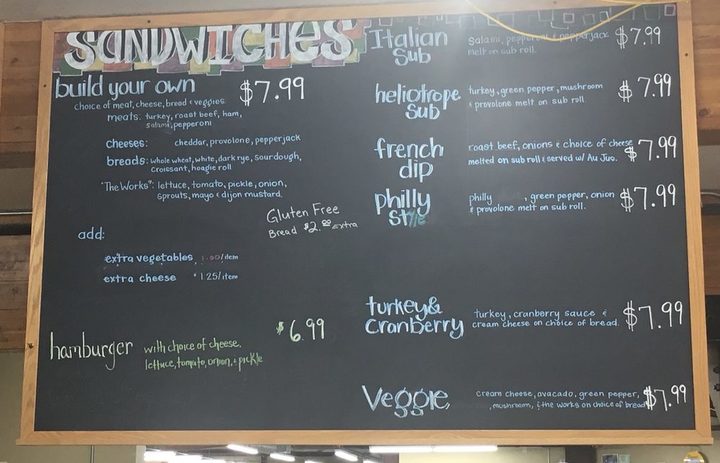 SANDWICHES
build your own $7.99
choice of meat, cheese, bread & veggies
meats: turkey, roast beef, ham,
salami, pepperoni
cheeses: cheddar, provolone, pepperjack
breads: whole wheat, white, dark rye, sourdough,
croissant, hoagie roll
"The Works": lettuce, tomato, pickle, onion,
sprouts, mayo & dijon mustard.
Gluten Free
Bread $2.00 extra
add:
extra vegetables 1.00/item
extra cheese 1.25/item
hamburger with choice of cheese, $6.99
lettuce, tomato, onion, & pickle
Italian Sub
salami, pepperoni & pepperjack $7.99
melt on sub roll.
heliotrope Sub
turkey, green pepper, mushroom $7.99
& provolone melt on sub roll.
french dip
roast beef, onions & choice of cheese $7.99
melted on sub roll & served w/ Au Juo.
philly style
philly , green pepper, onion $7.99
& provolone melt on sub roll.
turkey & cranberry
turkey, cranberry sauce & $7.99
cream cheese on choice of bread.
Veggie
cream cheese, avacado, green pepper, $7.99
, mushroom, & the works on choice of bread